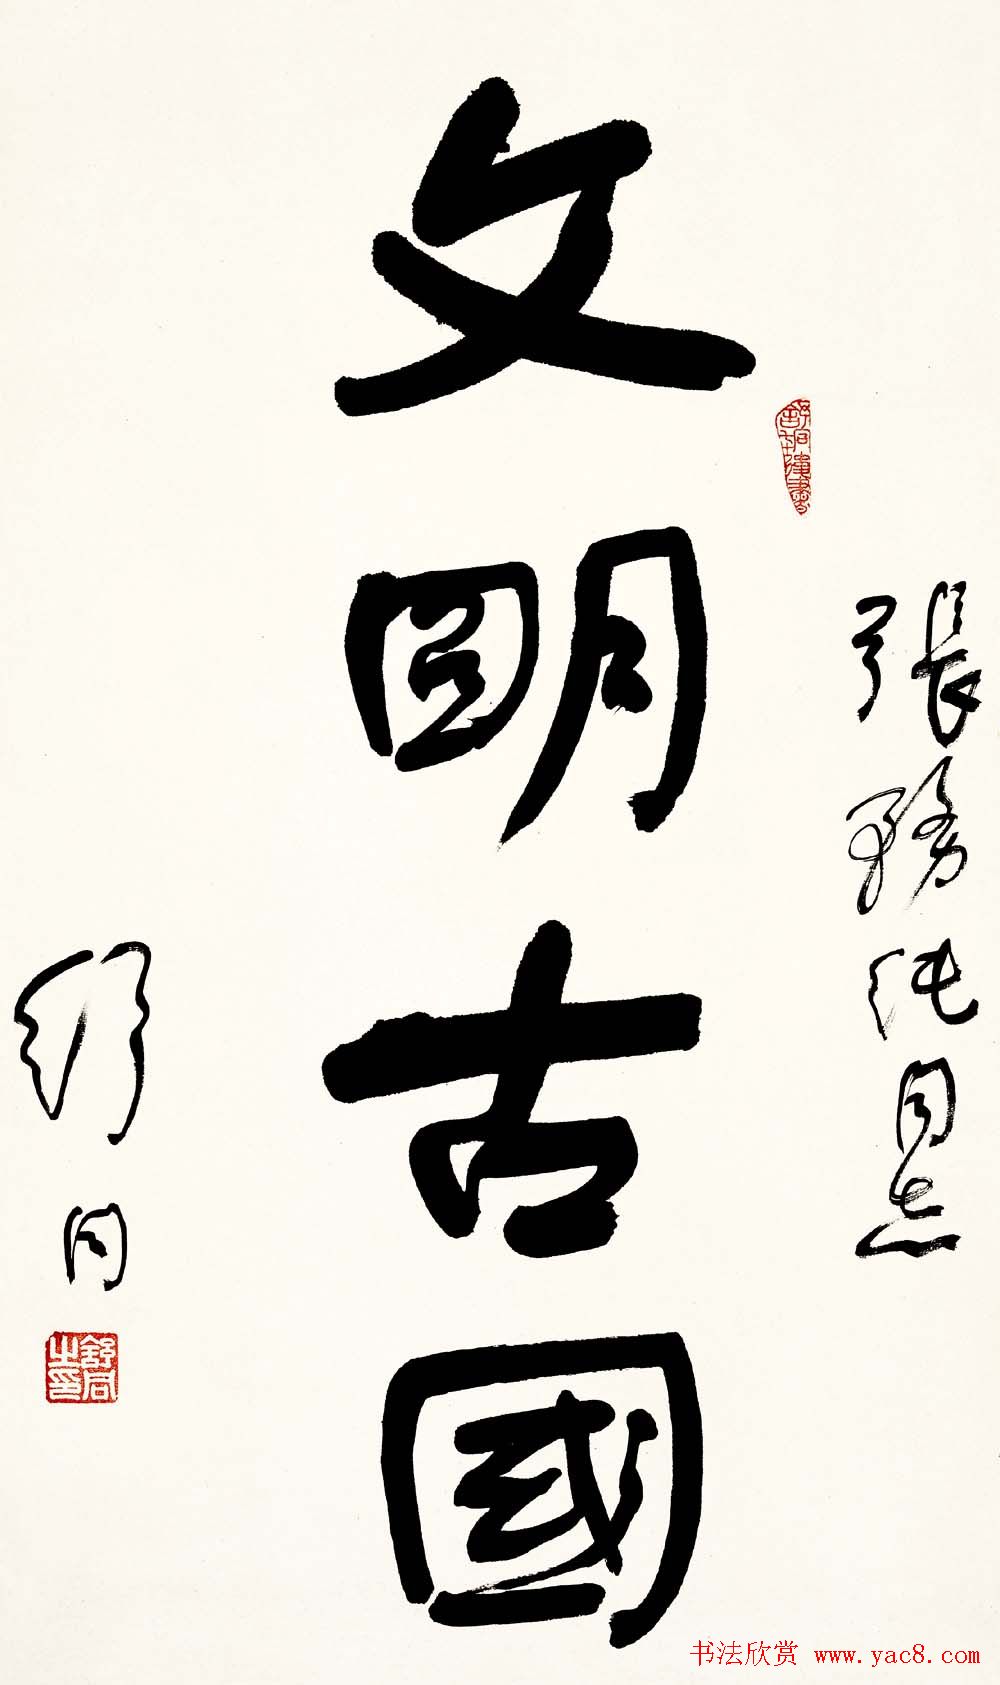 張務純同志
文明古國
舒同
舒同之印
书法欣赏 www.yac8.com